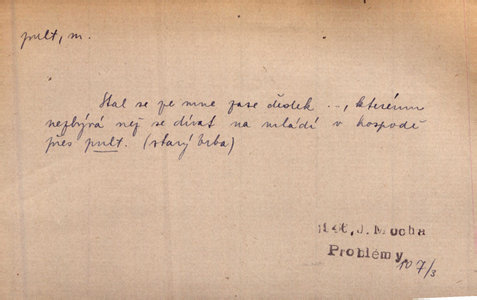 pult, m.
Stal se ze mne zase dědek ..., kterému
nezbývá než se dívat na mládí v hospodě
přes pult. (starý vrba)
J. Mocha
Problémy,
107/3